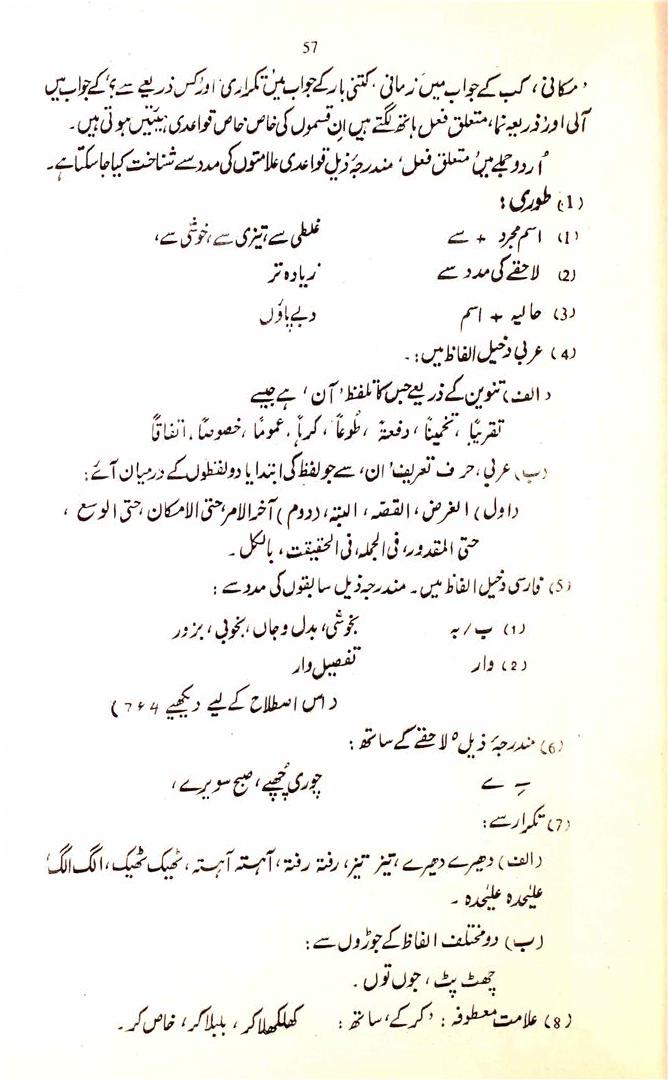 57
’مکانی، کب کے جواب میں زمانی، کتنی بار کے جواب میں تکراری اور کس ذریعے سے؟ کے جواب میں
آلی اور ذریعہ نما، متعلق فعل ہاتھ لگتے ہیں ان قسموں کی خاص خاص قواعدی ہیئتیں ہوتی ہیں۔
اُردو جملے میں متعلق فعل، مندرجۂ ذیل قواعدی علامتوں کی مدد سے شناخت کیا جا سکتا ہے۔
(1) طوری:
(1) اسم مجرد + سے غلطی سے، تیزی سے، خوشی سے،
(2) لاحقے کی مدد سے زیادہ تر
(3) حالیہ + اسم دبے پاؤں
(4) عربی دخیل الفاظ میں:۔
(الف) تنوین کے ذریعے جس کا تلفظ ’آن‘ ہے جیسے
تقریباً، تخمیناً، دفعۃً، طوعاً، کرہاً، عموماً، خصوصاً، اتفاقاً
(ب) عربی، حرف تعریف ’ان، سے جو لفظ کی ابتدا یا دو لفظوں کے درمیان آئے:
(اول) الغرض، القصہ، البتہ، (دوم) آخر الامر، حتی الامکان، حتی الوسع،
حتی المقدور، فی الجملہ، فی الحقیقت، بالکل۔
(5) فارسی دخیل الفاظ میں۔ مندرجہ ذیل سابقوں کی مدد سے:
(1) ب/بہ بخوشی، بدل وجاں، بخوبی، بزور
(2) وار تفصیل وار
(اس اصطلاح کے لیے دیکھیے 4 و 7)
(6) مندرجۂ ذیل لاحقے کے ساتھ:
ـِ ے چوری چُھپے، صبح سویرے،
(7) تکرار سے:
(الف) دھیرے دھیرے، تیز تیز، رفتہ رفتہ، آہستہ آہستہ، ٹھیک ٹھیک، الگ الگ،
علیٰحدہ علیٰحدہ ۔
(ب) دو مختلف الفاظ کے جوڑوں سے:
جھٹ پٹ، جوں توں۔
(8) علامت معطوفہ: ’کر کے، ساتھ: کھلکھلا کر، بلبلا کر، خاص کر۔